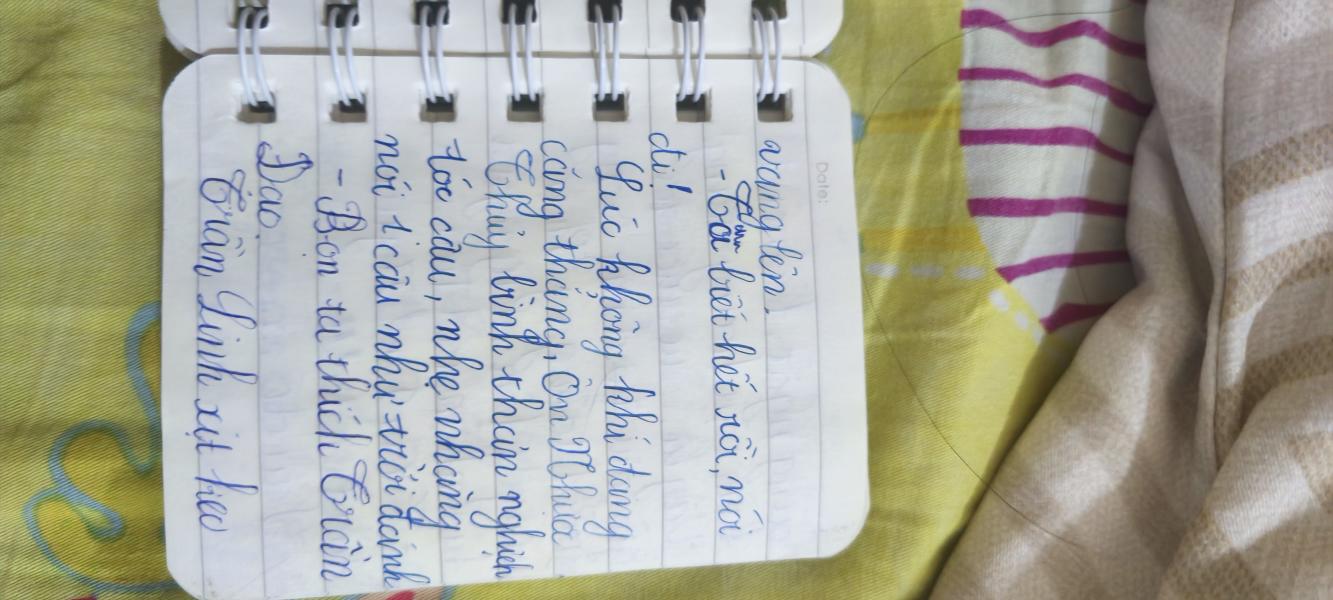 Date:
vang lên.
- Ta đau biết hết rồi, nói
đi!
Lúc không khí đang
căng thẳng, Ôn Nhiên
Thủy bình thản nghịch
tóc cậu, nhẹ nhàng
nói 1 câu như trời đánh
- Bọn ta thích Trần
Dao.
Trần Linh xịt keo